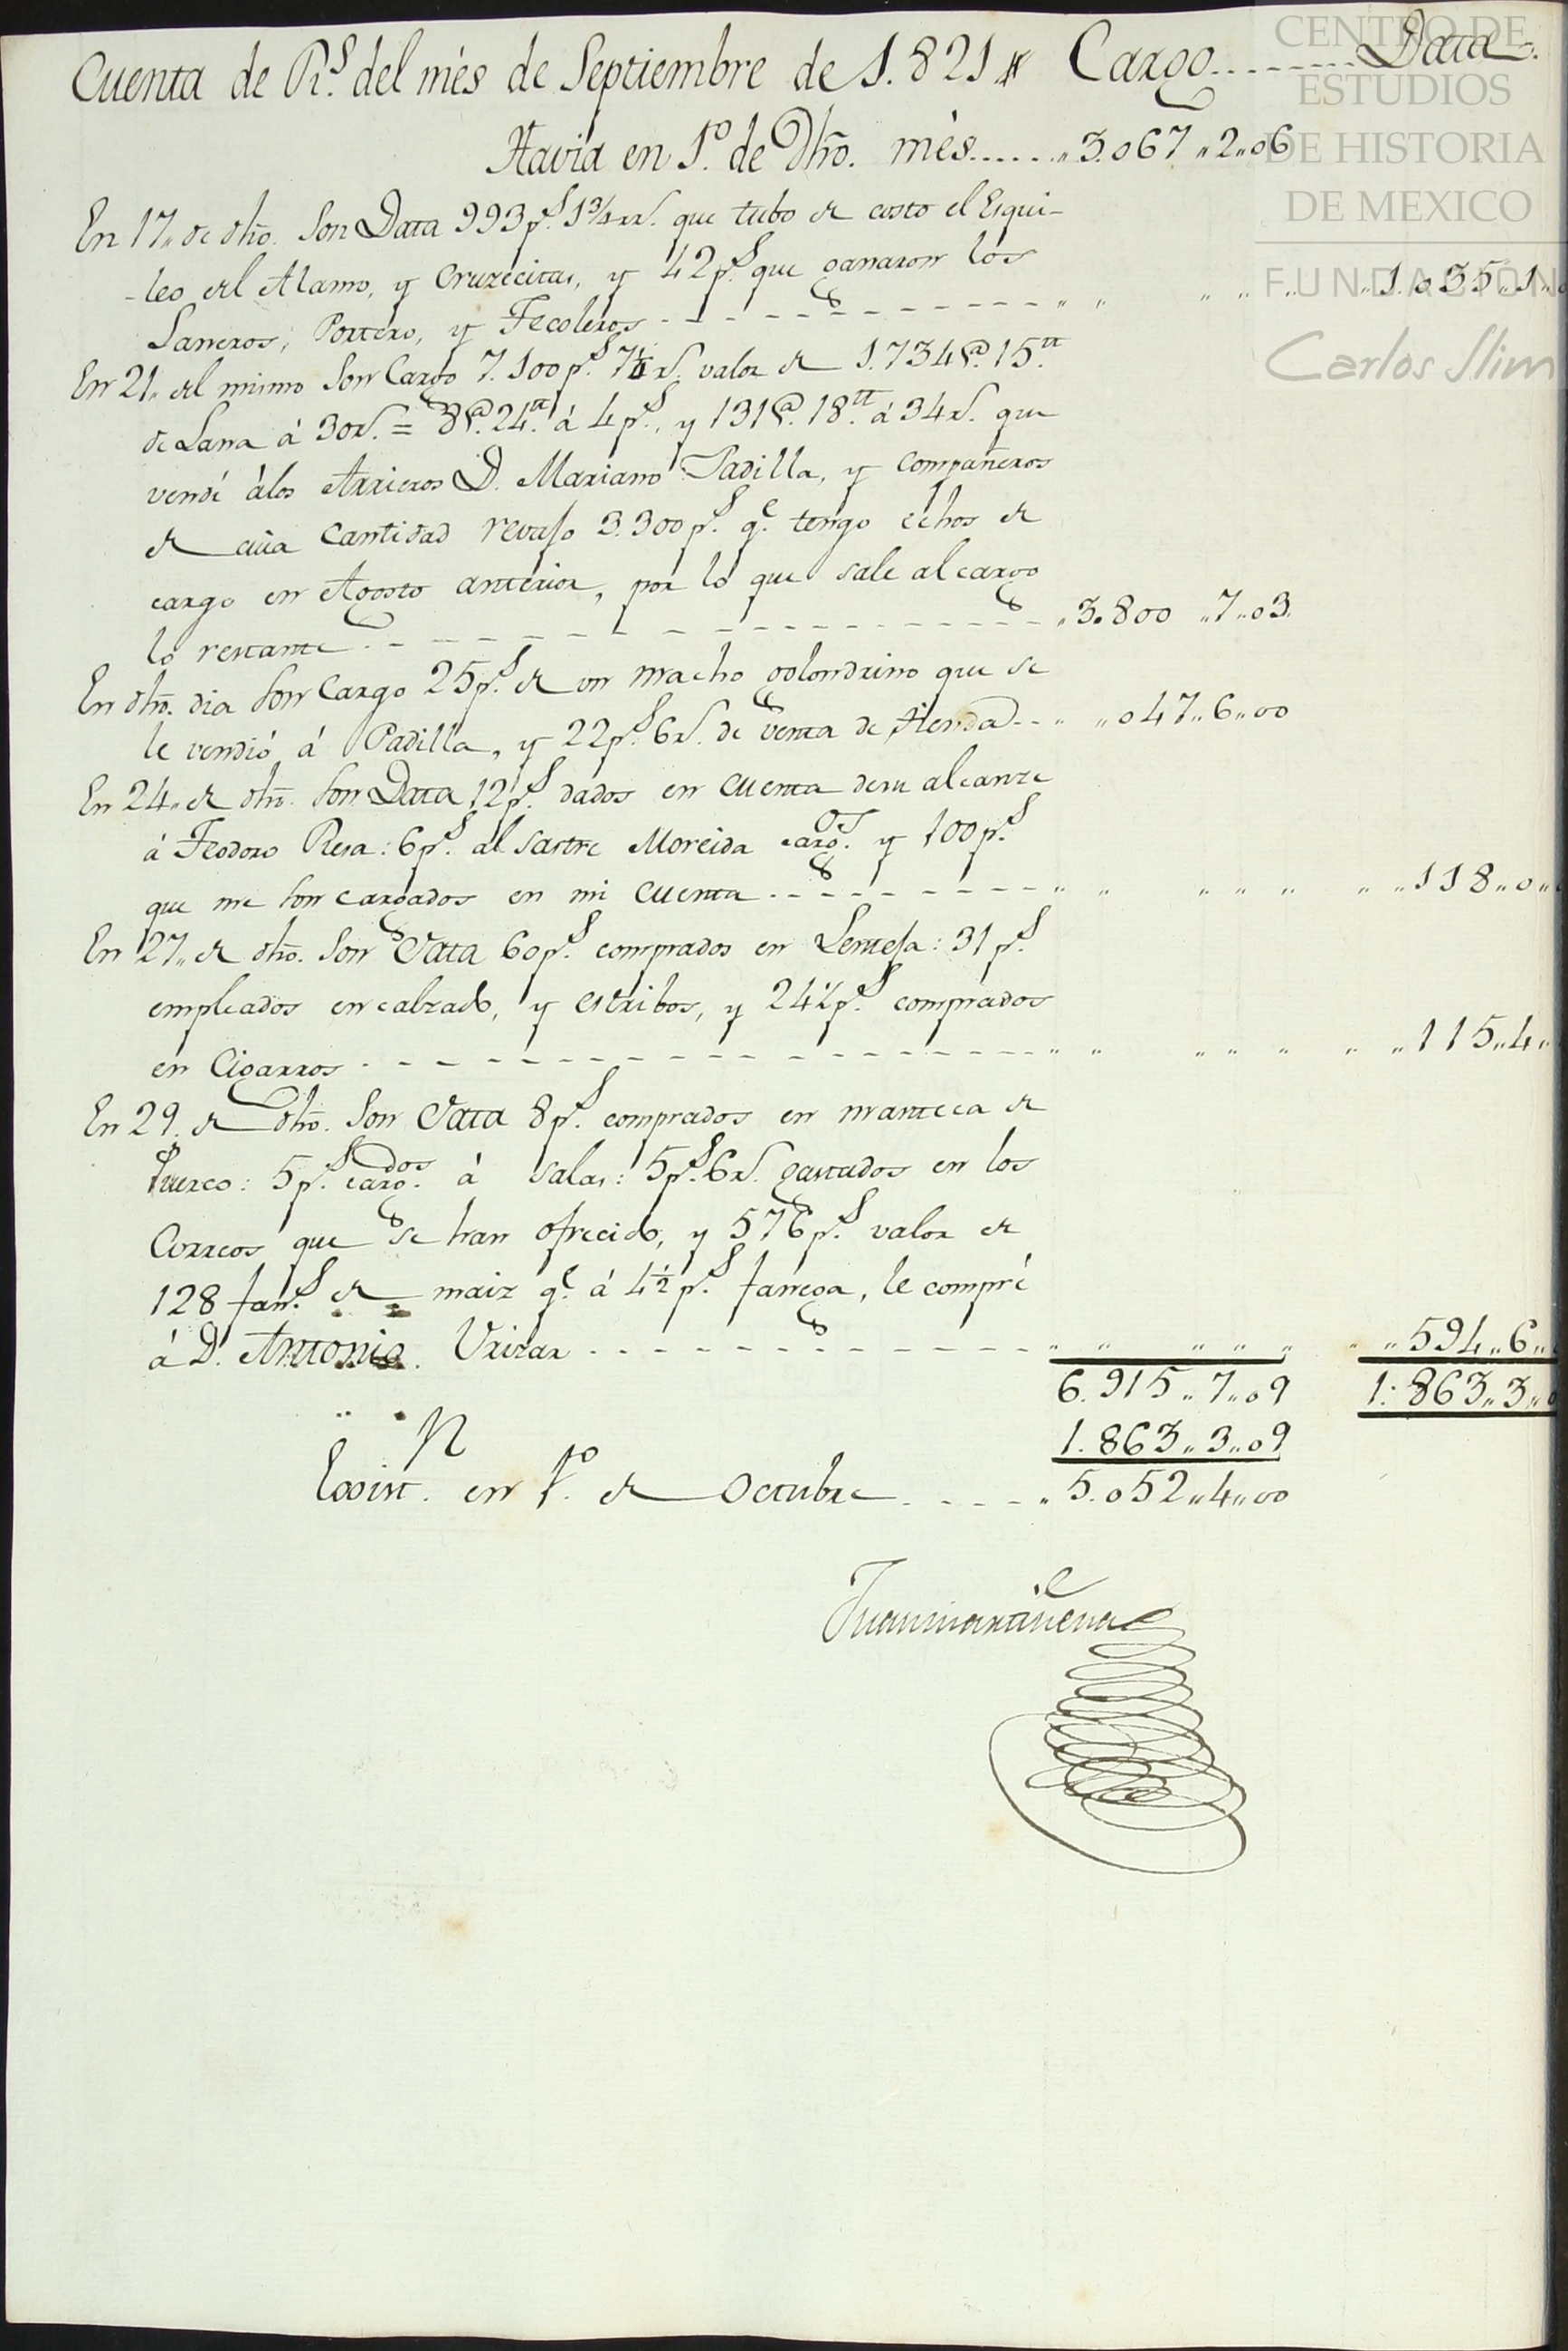 Cuenta de R.s del més de Septiembre de 1.821 Cargo........Data.
Havia en 1.o de Dho. més......,,3.067,,2,,06
En 17,, de dho. Son Data 993p.s 1¾rr.s que tubo de costo el Esqui-
-leo del Alamo, y Cruzecitas, y 42p.s que ganaron los
Laneros, Portero, y Fecoleros - - - - - - - - - - ,, ,, ,, ,, ,, ,,1.035,,1,,
En 21,, del mismo Son Cargo 7.100p.s 7¼r.s valor de 1.734@. 15.tt
de Lana á 30r.s = 8@. 24.tt á 4p.s, y 131@. 18.tt á 34r.s que
vendi álos Arrieros D. Mariano Padilla, y compañeros
de cuia cantidad revajo 3.300p.s q.e tengo echos de
cargo en Agosto anterior, por lo que sale al cargo
lo restante - - - - - - - - - - - - - - ,,3.800 ,,7,,03.
En dho. dia Son Cargo 25p.s de un macho golondrino que se
le vendió á Padilla, y 22p.s 6r.s de venta de tienda - - ,, ,,047,,6,,00
En 24,, de dho. Son Data 12p.s dados en cuenta desu alcanze
á Teodoro Resa: 6p.s al sastre Moreida carg.os y 100p.s
que me son cargados en mi cuenta - - - - - - - ,, ,, ,, ,, ,, ,, ,,118,,0,,
En 27,, de dho. Son Data 60p.s comprados en Lenteja: 31p.s
empleados en calzado, y estribos, y 24½p.s comprados
en Cigarros - - - - - - - - - - - - - ,, ,, ,, ,, ,, ,, ,,115,,4,,
En 29. de dho. Son Data 8p.s comprados en manteca de
Puerco: 5p.s carg.dos á Salas: 5p.s 6r.s gastados en los
Correos que se han ofrecido, y 576p.s valor de
128 fan.s de maiz q.e á 4½p.s fanega, le compré
á D. Antonio Urizar - - - - - - - - - - ,, ,, ,, ,, ,, ,, ,,594,,6,,
6.915,,7,,09 1.863,,3,,0
1.863,,3,,09
Exist.n en 1.o de Octubre - - - - ,,5.052,,4,,00
Juanmartiñena
CENTRO DE
ESTUDIOS
DE HISTORIA
DE MEXICO
FUNDACIÓN
Carlos Slim